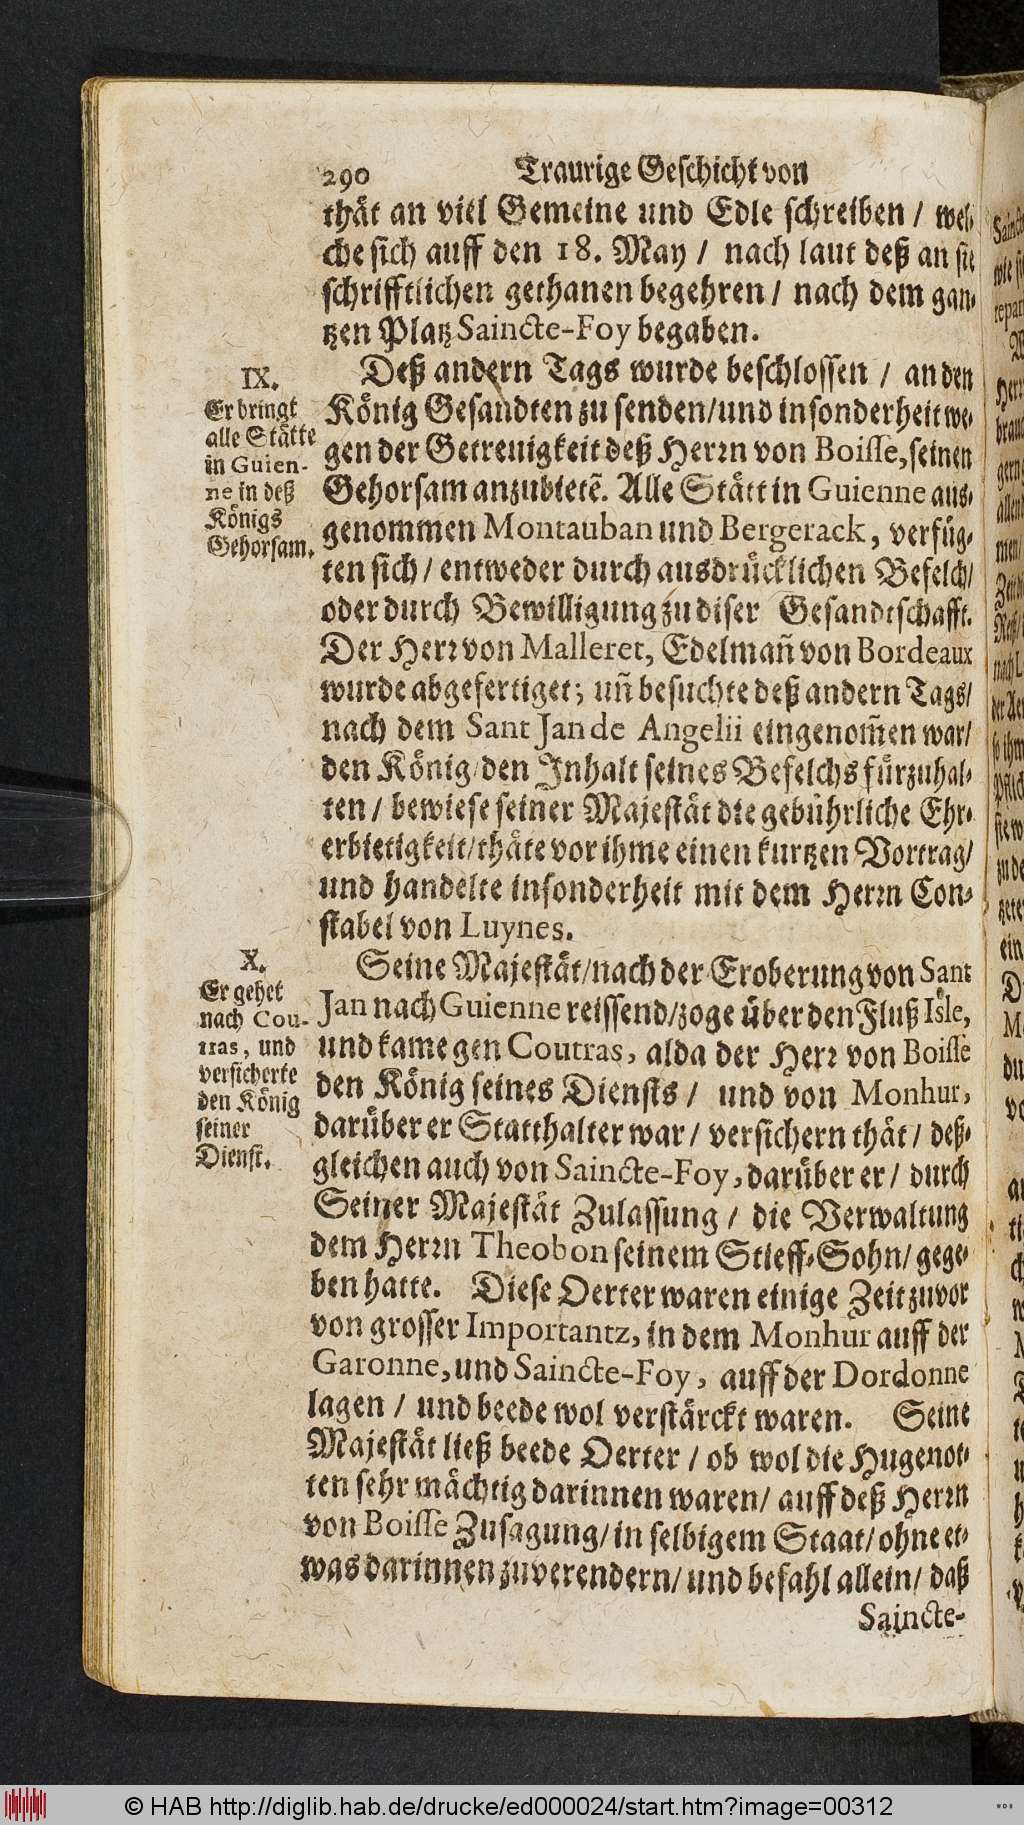 290 Traurige Geschicht von
thät an viel Gemeine und Edle schreiben / wel-
che sich auff den 18. May / nach laut deß an sie
schrifftlichen gethanen begehren / nach dem gan-
tzen Platz Saincte-Foy begaben.
IX.
Er bringt
alle Stätte
in Guien-
ne in deß
Königs
Gehorsam.
Deß andern Tags wurde beschlossen / an den
König Gesandten zu senden / und insonderheit we-
gen der Getreuigkeit deß Herrn von Boisse, seinen
Gehorsam anzubietẽ. Alle Stätt in Guienne aus-
genommen Montauban und Bergerack, verfüg-
ten sich / entweder durch ausdrücklichen Befelch /
oder durch Bewilligung zu diser Gesandtschafft.
Der Herr von Malleret, Edelmañ von Bordeaux
wurde abgefertiget; uñ besuchte deß andern Tags /
nach dem Sant Jan de Angelii eingenom̃en war /
den König / den Inhalt seines Befelchs fürzuhal-
ten / bewiese seiner Majestät die gebührliche Ehr-
erbietigkeit / thäte vor ihme einen kurtzen Vortrag /
und handelte insonderheit mit dem Herrn Con-
stabel von Luynes.
X.
Er gehet
nach Cou-
tras, und
versicherte
den König
seiner
Dienst.
Seine Majestät / nach der Eroberung von Sant
Jan nach Guienne reissend / zoge über den Fluß Isle,
und kame gen Coutras, alda der Herr von Boisse
den König seines Diensts / und von Monhur,
darüber er Statthalter war / versichern thät / deß-
gleichen auch von Saincte-Foy, darüber er / durch
Seiner Majestät Zulassung / die Verwaltung
dem Herrn Theobon seinem Stieff-Sohn / gege-
ben hatte. Diese Oerter waren einige Zeit zuvor
von grosser Importantz, in dem Monhur auff der
Garonne, und Saincte-Foy, auff der Dordonne
lagen / und beede wol verstärckt waren. Seine
Majestät ließ beede Oerter / ob wol die Hugenot-
ten sehr mächtig darinnen waren / auff deß Herrn
von Boisse Zusagung / in selbigem Staat / ohne et-
was darinnen zuverendern / und befahl allein / daß
Saincte-
© HAB http://diglib.hab.de/drucke/ed000024/start.htm?image=00312